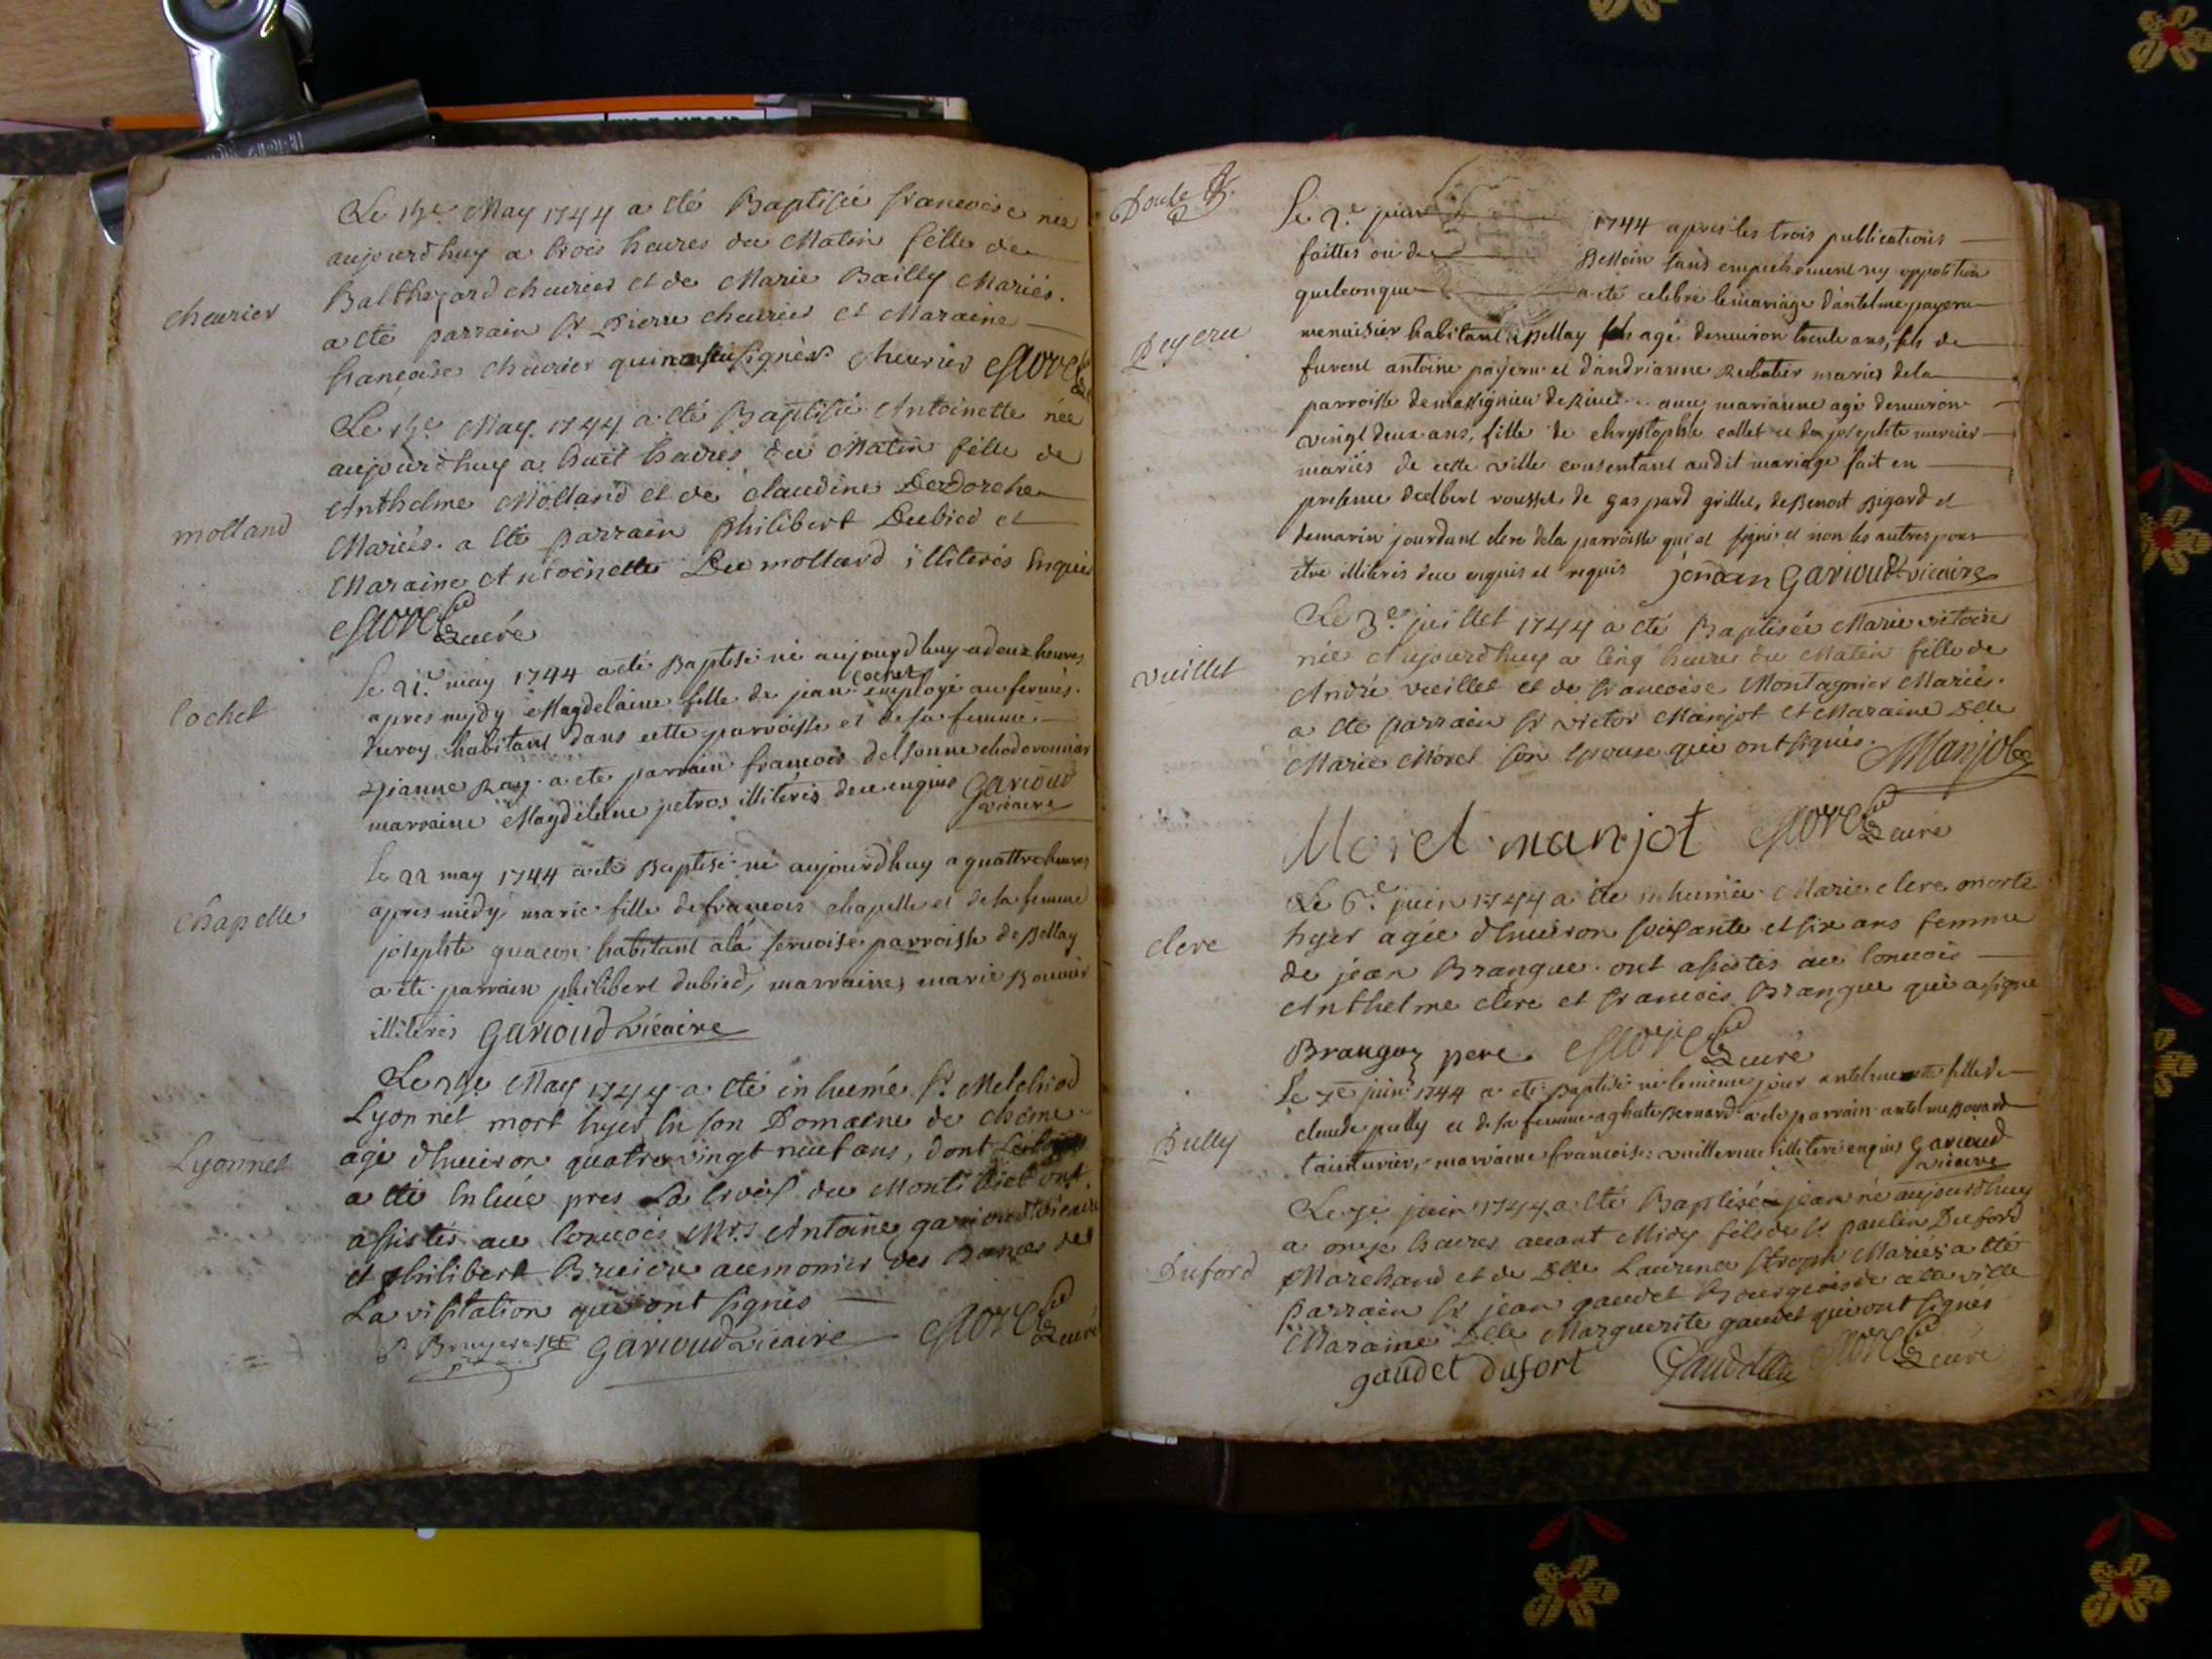 Le May 1744 a été Baptisée francoise née
aujourdhuy a trois heures du Matin fille de
Balthazard cheurier et de Marie Bailly Mariés.
cheurier
a eté parrain Sr Pierre cheurier et Maraine
francoise cheurier qui signés cheurier Morel
Le May 1744 a été Baptisée Antoinette née
aujourdhuy a huit heures du Matin fille de
Anthelme Molland et de claudine DesDorche
molland
Mariés. a été parrain Philibert Dubied et
Maraine Antoinette Du mollard illiterés Enquis
Morel curé
Le 21e may 1744 a été Baptisé né aujourdhuy a deux heures
cochet
apres mydy Magdelaine fille de jean cochet employé au fermes
du roy habitant dans cette parroisse et de sa femme
Ray a ete parrain francois delsonne
marraine Magdelene petros illiterés enquis Garioud
vicaire
Le 22 may 1744 a été Baptisé né aujourdhuy a quattre heures
chapelle
apres midy marie fille de francois chapelle et de sa femme
josephte habitant a la parroisse de Bellay
a été parrain philibert dubied, marraine, marie Bouvier
illiterés Garioud vicaire
Le May 1744 a été inhumé Sr Melchiod
Lyonnet mort hyer En son Domaine de chêne
Lyonnet
agé d'Enuiron quatre vingt neuf ans, dont
a été Enleué pres La Croix du ont
assistés au Conuois Mrs Antoine garioud vicaire
et philibert Bruiere aumonier des Dames de
La visitation qui ont signés
P Bruyere Garioud vicaire Morel curé
Double
Le 2e juin 1744 apres les trois publications
faittes ou de Besoin sans empechement ny opposition
quelconque a été celebré le mariage d'antelme payern
Peyern
menuisier habitant a Bellay agé denuiron trente ans, fils de
furent antoine payern et d'andrianne Rubatier mariés de la
parroisse de massignieu de Riues auec marianne agé denuiron
vingt deux ans, fille de chrystophle collet et de josephte mercier
mariés de cette ville consentant audit mariage fait en
presence dedbert roussel de gaspard grillet, de Benoit Bigard et
demarin jourdant clerc de la parroisse qui at signé et non les autres pour
etre illiterés enquis et requis Garioud vicaire
Le 3e juillet 1744 a été Baptisée Marie victoire
vueillet
née Aujourdhuy a Cinq heures du Matin fille de
André vueillet et de francoise Montagnier Mariés.
a été parrain Sr victor Manjot et Maraine Dlle
Marie Morel son Epouse qui ont signés. Manjot
Morel manjot Morel curé
Le 6e juin 1744 a été inhumée Marie clerc morte
clerc
hyer agée d'Enuiron soixante et six ans femme
de jean Brangue. ont assistés au Conuois
Anthelme clerc et francois Brangue qui a signé
Brangoz pere Morel curé
Le 7e juin 1744 a eté Baptisé né le meme jour antelmette fille de
Pully
claude pully et de sa femme aghate Bernard a ete parrain antelme Bouard
tainturier, marraine francoise vuillerme illiteré enquis Garioud
vicaire
Le 7e juin 1744 a été Baptisé jean né aujourdhuy
a onze heures auant Midy fils de Sr paulin Duford
Duford
Marchand et de Dlle Laurence Stroph Mariés a été
parrain Sr jean gaudet Bourgeois de la ville
Maraine Dlle Marguerite gaudet qui ont signés
gaudet dufort Gaudet Morel curé